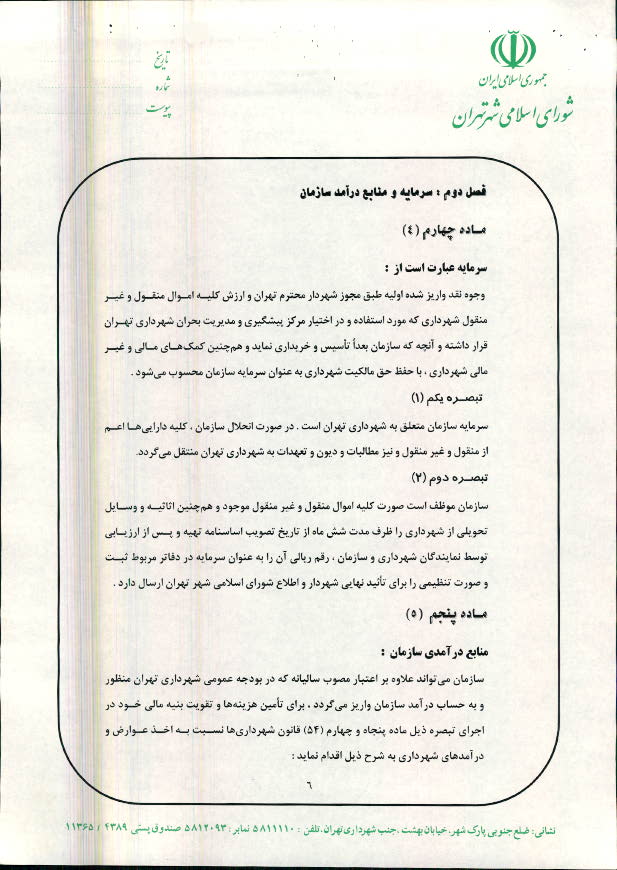 جمهوری اسلامی ایران
شورای اسلامی شهر تهران
تاریخ
شماره
پیوست
فصل دوم : سرمایه و منابع درآمد سازمان
مـاده چهارم (٤)
سرمایه عبارت است از :
وجوه نقد واریز شده اولیه طبق مجوز شهردار محترم تهران و ارزش کلیـه امـوال منقـول و غیـر
منقول شهرداری که مورد استفاده و در اختیار مرکز پیشگیری و مدیریت بحران شهرداری تهـران
قرار داشته و آنچه که سازمان بعداً تأسیس و خریداری نماید و هم‌چنین کمک‌هـای مـالی و غیـر
مالی شهرداری ، با حفظ حق مالکیت شهرداری به عنوان سرمایه سازمان محسوب می‌شود .
تبصـره یکم (۱)
سرمایه سازمان متعلق به شهرداری تهران است . در صورت انحلال سازمان ، کلیه دارایی‌هـا اعـم
از منقول و غیر منقول و نیز مطالبات و دیون و تعهدات به شهرداری تهران منتقل می‌گردد.
تبصـره دوم (۲)
سازمان موظف است صورت کلیه اموال منقول و غیر منقول موجود و هم‌چنین اثاثیـه و وسـایل
تحویلی از شهرداری را ظرف مدت شش ماه از تاریخ تصویب اساسنامه تهیه و پـس از ارزیـابی
توسط نمایندگان شهرداری و سازمان ، رقم ریالی آن را به عنوان سرمایه در دفاتر مربوط ثبـت
و صورت تنظیمی را برای تأئید نهایی شهردار و اطلاع شورای اسلامی شهر تهران ارسال دارد .
مـاده پنجم (٥)
منابع درآمدی سازمان :
سازمان می‌تواند علاوه بر اعتبار مصوب سالیانه که در بودجه عمومی شهرداری تهران منظور
و به حساب درآمد سازمان واریز می‌گردد ، برای تأمین هزینه‌ها و تقویت بنیه مالی خـود در
اجرای تبصره ذیل ماده پنجاه و چهارم (٥٤) قانون شهرداری‌ها نسبت بـه اخـذ عـوارض و
درآمدهای شهرداری به شرح ذیل اقدام نماید :
٦
نشانی: ضلع جنوبی پارک شهر، خیابان بهشت ، جنب شهرداری تهران، تلفن : ۵۸۱۱۱۱۰ نمابر : ۵۸۱۲۰۹۳ صندوق پستی ۴۳۸۹ / ۱۱۳۶۵